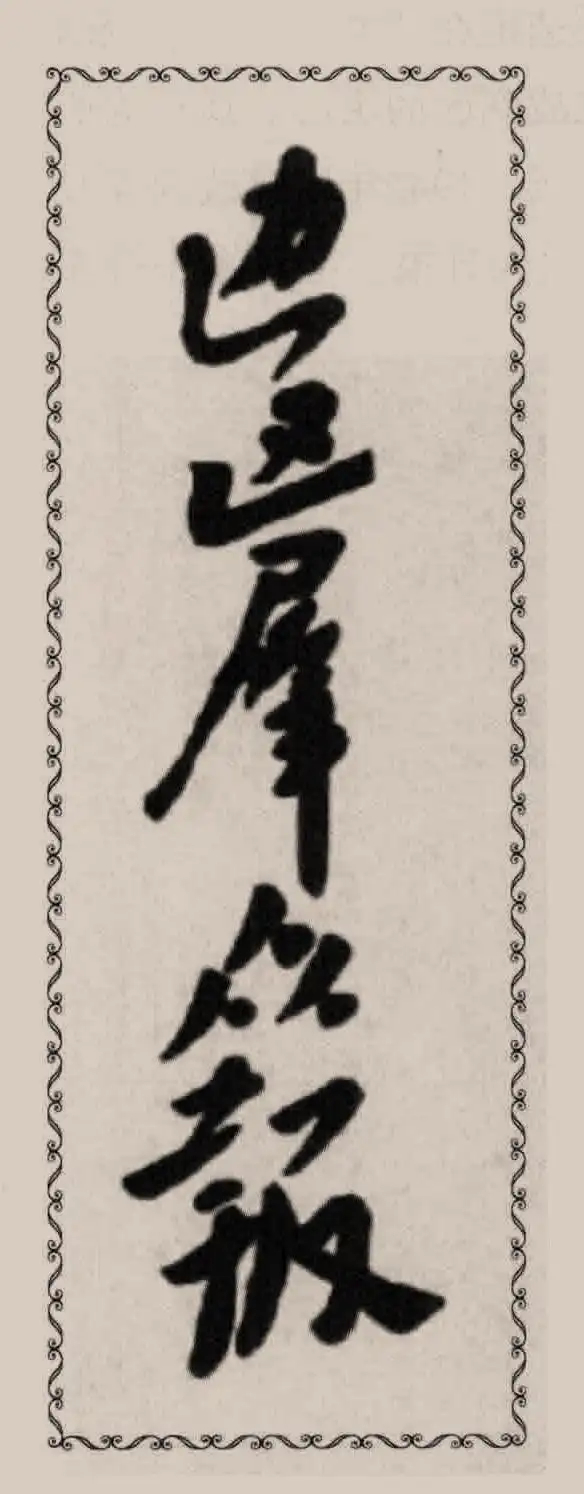 边区羣众报